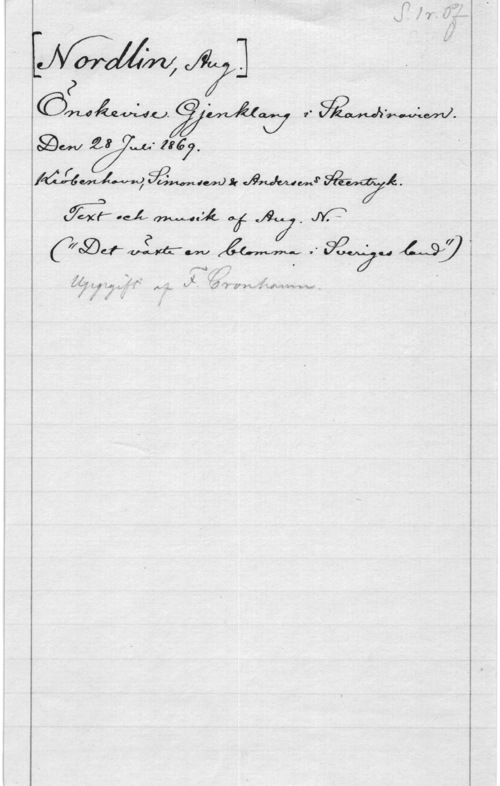 S. 1r. Of
[Nordlin, Aug.]
Önskevise Gjenklang i Skandinavien.
Den 28 Juli 1869.
Kiöbenhavn, Simonsen & Andersens Steentryk.
Text och musik af Aug. N.-
("Det växte en blomma i Sveriges land")
Uppgift af F. Cronhamn.